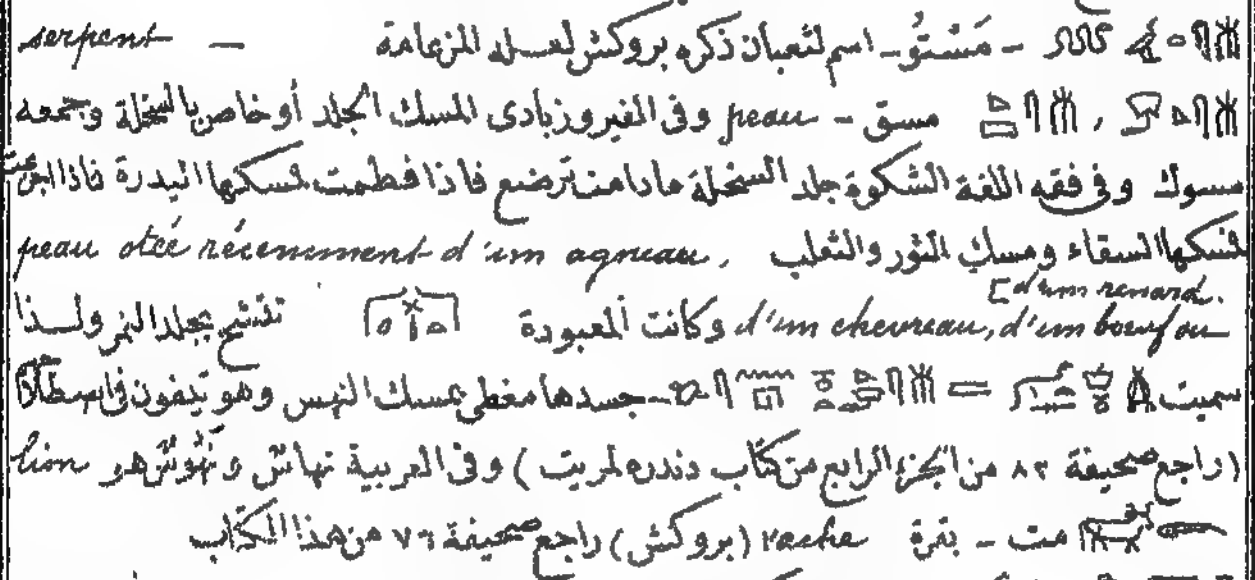 مَسْتُو - اسم لثعبان ذكره بروكش لعله المزعامة — serpent
مسق - peau وفى الفيروزبادى المسك الجلد أو خاص بالسخلة وجمعه
مسوك وفى فقه اللغة الشكوة جلد السخلة مادامت ترضع فاذا فطمت فمسكها البدرة فاذا
فمسكها السقاء ومسك الثور والثعلب peau otée récemment d'un agneau,
d'un chevreau, d'un boeuf ou [d'un renard. وكانت المعبودة تتشح بجلد النمر ولذا
سميت = جسدها مغطى بمسك النمس وهو تيفون فى
(راجع صحيفة ٨٢ من الجزء الرابع من كتاب دندره لمريت) وفى العربية نهاش و هو
مت - بقرة vache (بروكش) راجع صحيفة ٧٦ من هذا الكتاب